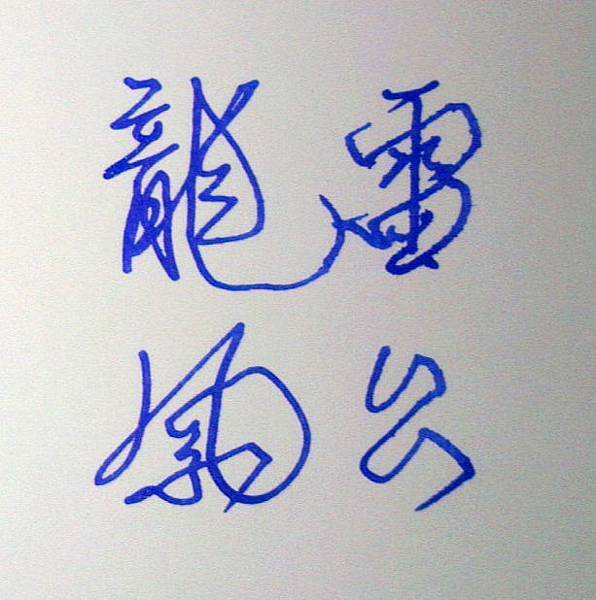 雷公
龍鳳